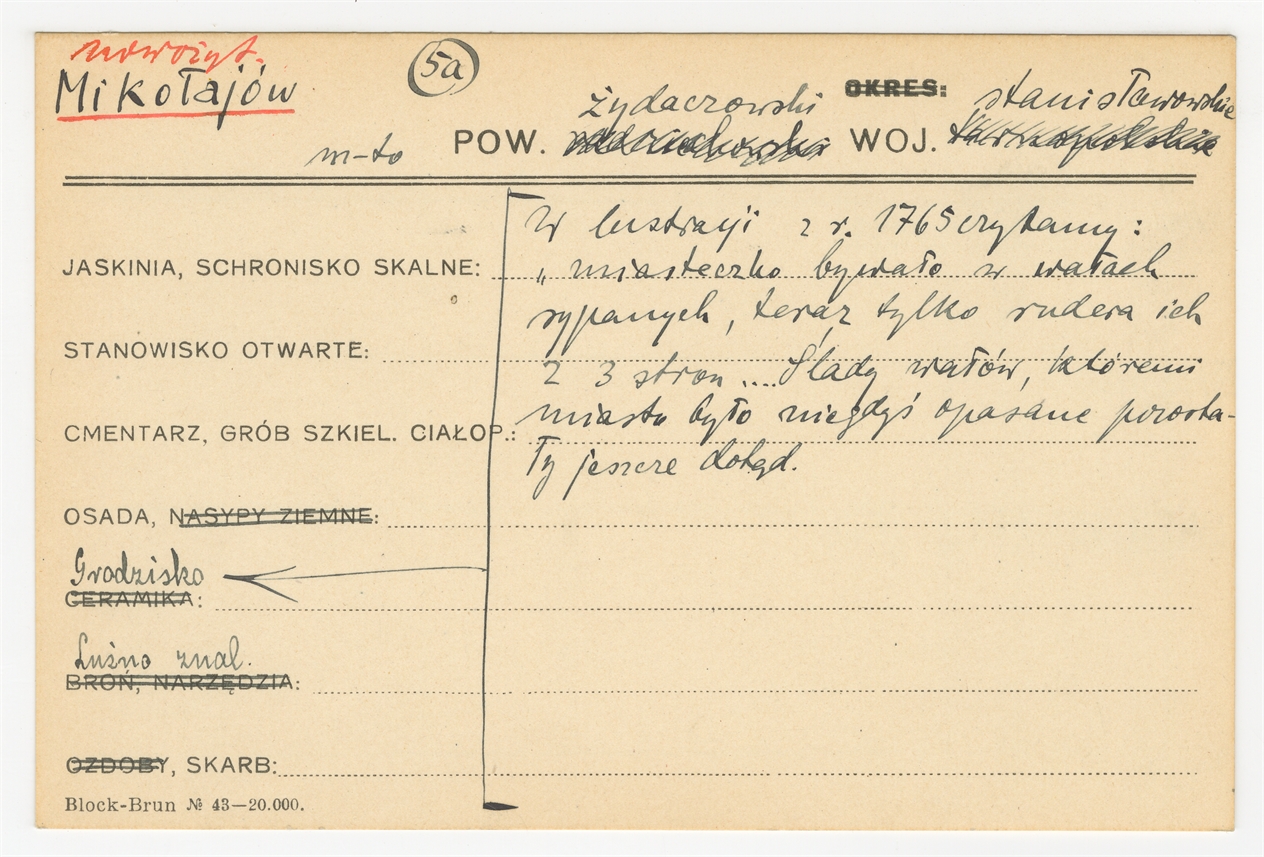 nowożyt.
Mikołajów
5a
m-to
żydaczowski
OKRES:
stanisławowskie
POW. WOJ.
W lustracji z r. 1765 czytamy:
JASKINIA, SCHRONISKO SKALNE:
„miasteczko bywało w wałach
sypanych, teraz tylko rudera ich
STANOWISKO OTWARTE:
z 3 stron .... Ślady wałów, któremi
miasto było niegdyś opasane pozosta-
CMENTARZ, GRÓB SZKIEL. CIAŁOP.:
ły jeszcze dotąd.
OSADA, NASYPY ZIEMNE:
Grodzisko
CERAMIKA:
Luźno znal.
BROŃ, NARZĘDZIA:
OZDOBY, SKARB:
Block-Brun № 43—20.000.